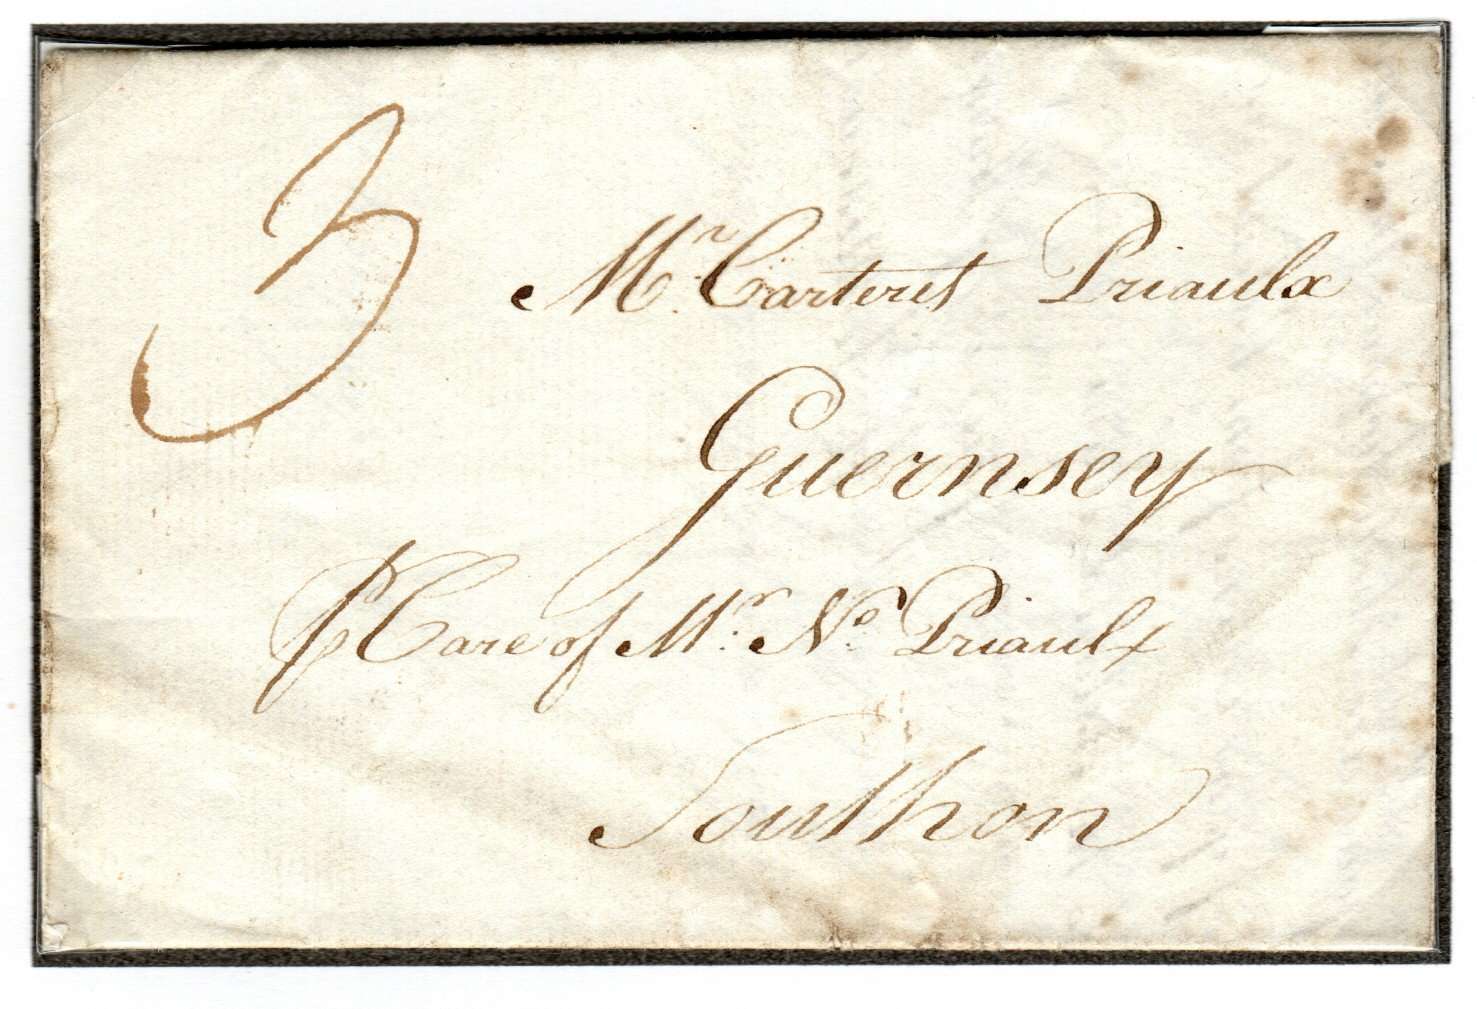 3
Mr. Carteret Priaulx
Guernsey
⅌ Care of Mr. No. Priaulx
Southon